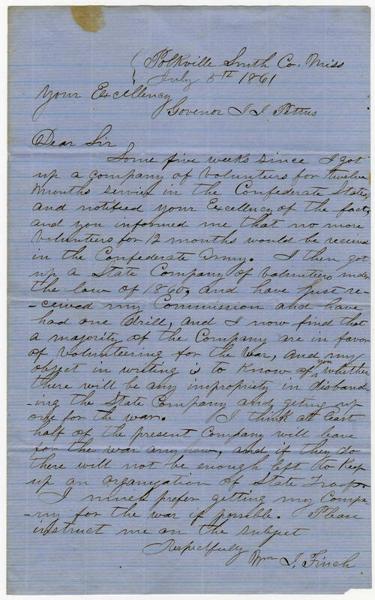 Polkville Smith Co. Miss
July 5th 1861
Your Excellency
Govenor J J Pettus
Dear Sir
Some five weeks since I got
up a company of Volunteers for twelve
months service in the Confederate States
and notified your Excellency of the fact,
and you informed me that no more
Volunteers for 12 months would be received
in the Confederate Army. I then got
up a State Company of Volunteers under
the law of 1860, and have just re-
-ceived my Commission and have
had one Drill, and I now find that
a majority of the Company are in favor
of Volunteering for the War, and my
object in writing is to know of you whether
there will be any impropriety in disband-
ing the State Company and getting up
one for the war. I think at least
half of the present Company will leave
for the war any how, and if they do
there will not be enough left to keep
up an organization of State Troops
I much prefer getting my Compa-
-ny for the war if possible. Please
instruct me on the subject
Respectfully
Wm J. Finch